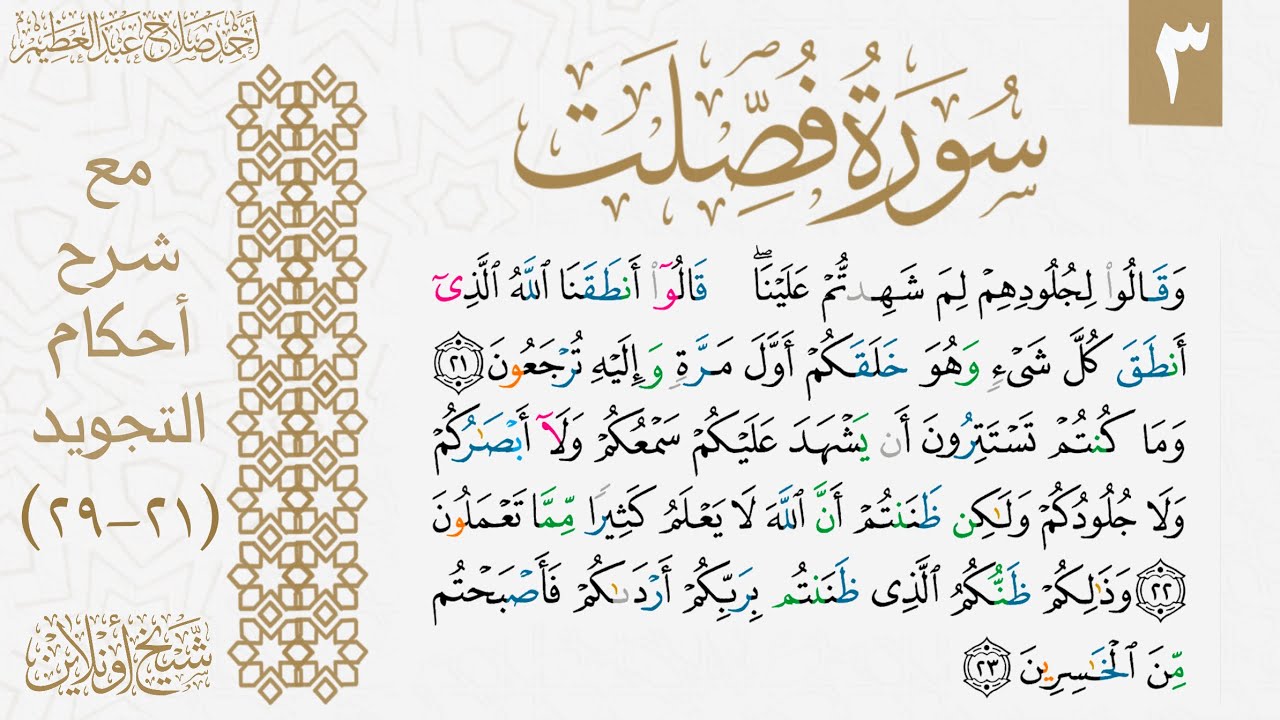 ٣
أحمد صلاح عبد العظيم
سُورَةُ فُصِّلَت
وَقَالُوا۟ لِجُلُودِهِمْ لِمَ شَهِدتُّمْ عَلَيْنَا ۖ قَالُوٓا۟ أَنطَقَنَا ٱللَّهُ ٱلَّذِىٓ
أَنطَقَ كُلَّ شَىْءٍ وَهُوَ خَلَقَكُمْ أَوَّلَ مَرَّةٍ وَإِلَيْهِ تُرْجَعُونَ ٢١
وَمَا كُنتُمْ تَسْتَتِرُونَ أَن يَشْهَدَ عَلَيْكُمْ سَمْعُكُمْ وَلَآ أَبْصَٰرُكُمْ
وَلَا جُلُودُكُمْ وَلَٰكِن ظَنَنتُمْ أَنَّ ٱللَّهَ لَا يَعْلَمُ كَثِيرًا مِّمَّا تَعْمَلُونَ
٢٢ وَذَٰلِكُمْ ظَنُّكُمُ ٱلَّذِى ظَنَنتُم بِرَبِّكُمْ أَرْدَىٰكُمْ فَأَصْبَحْتُم
مِّنَ ٱلْخَٰسِرِينَ ٢٣
مع
شرح
أحكام
التجويد
(٢١-٢٩)
شيخ أونلاين